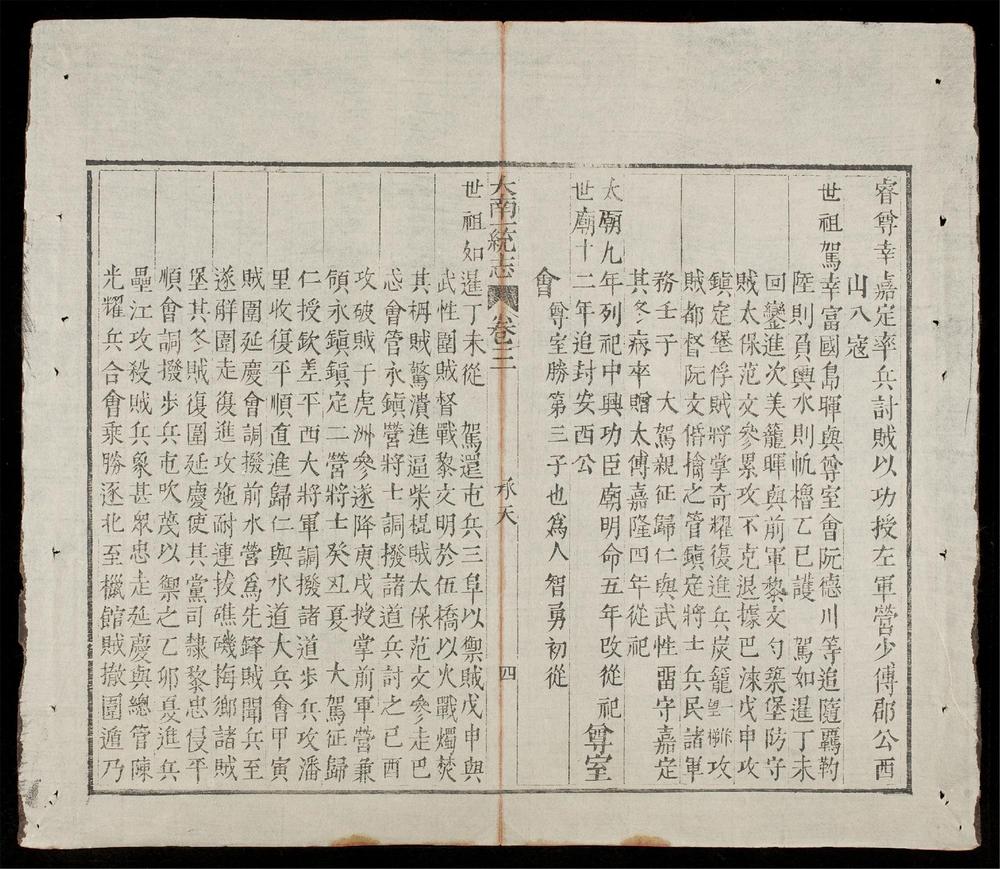 睿尊幸嘉定率兵討賊以功授左軍營少傅郡公西
山入寇
世祖駕幸富國島暉與尊室會阮德川等追隨羈靮
陸則負輿水則帆櫓乙巳護　駕如暹丁未
回鑾進次美籠暉與前軍黎文勻築堡防守
賊太保范文參累攻不克退據巴涑戊申攻
鎮定堡俘賊將掌奇耀復進兵炭籠一攻
賊都督阮文擒之管鎮定將士兵民諸軍
務壬子　大駕親征歸仁與武性雷守嘉定
其冬病卒贈太傅嘉隆四年從祀
太廟九年列祀中興功臣廟明命五年改從祀
世廟十二年追封安西公　尊室
會尊室勝第三子也爲人智勇初從
大南一統志　卷三　承天　四
世祖如暹丁未從　駕還屯兵三阜以禦賊戊申與
武性圍賊督戰黎文明於伍橋以火戰燭焚
其柵賊驚潰進逼柴棍賊太保范文參走巴
忒會管永鎮營將士調撥諸道兵討之己酉
攻破賊于虎洲參遂降庚戌授掌前軍營兼
領永鎮鎮定二營將士癸丑夏　大駕征歸
仁授欽差平西大將軍調撥諸道步兵攻潘
里收復平順直進歸仁與水道大兵會甲寅
賊圍延慶會調撥前水營爲先鋒賊聞兵至
遂解圍走復進攻施耐連拔礁磯梅鄉諸賊
堡其冬賊復圍延慶使其黨司隸黎忠侵平
順會調撥步兵屯吹蔑以禦之乙卯夏進兵
壘江攻殺賊兵象甚眾忠走延慶與總管陳
光耀兵合會乘勝逐北至檵館賊撤圍遁乃